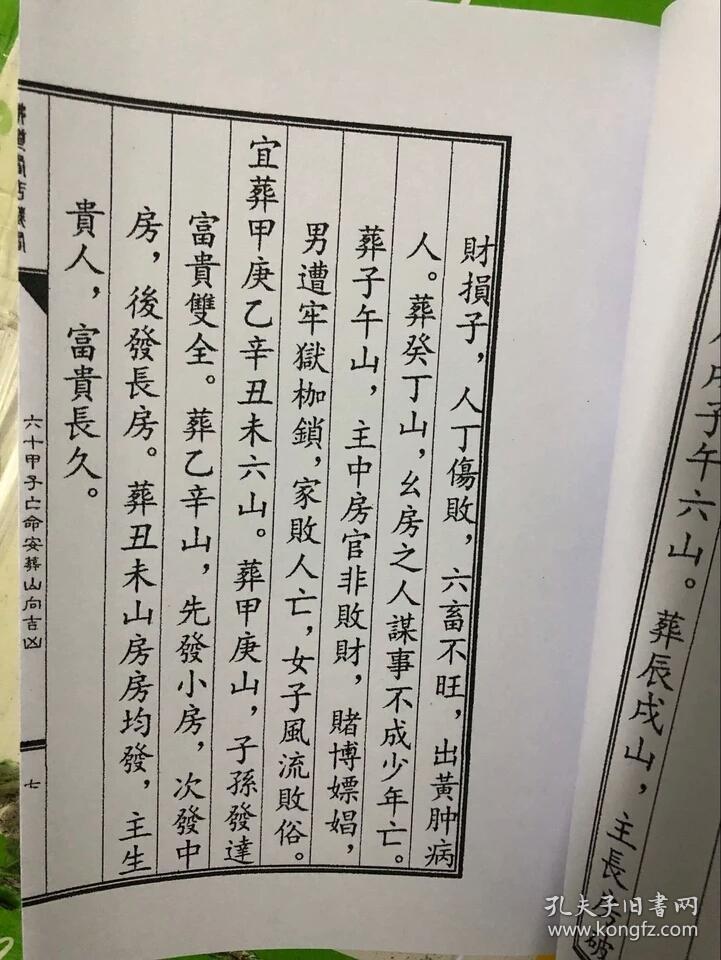 財損子，人丁傷敗，六畜不旺，出黃肿病
人。葬癸丁山，幺房之人謀事不成少年亡。
葬子午山，主中房官非敗財，賭博嫖娼，
男遭牢獄枷鎖，家敗人亡，女子風流敗俗。
宜葬甲庚乙辛丑未六山。葬甲庚山，子孫發達
富貴雙全。葬乙辛山，先發小房，次發中
房，後發長房。葬丑未山房房均發，主生
貴人，富貴長久。
六十甲子亡命安葬山向吉凶
七
子午六山。葬辰戌山，主長房破
孔夫子旧书网
www.kongfz.com